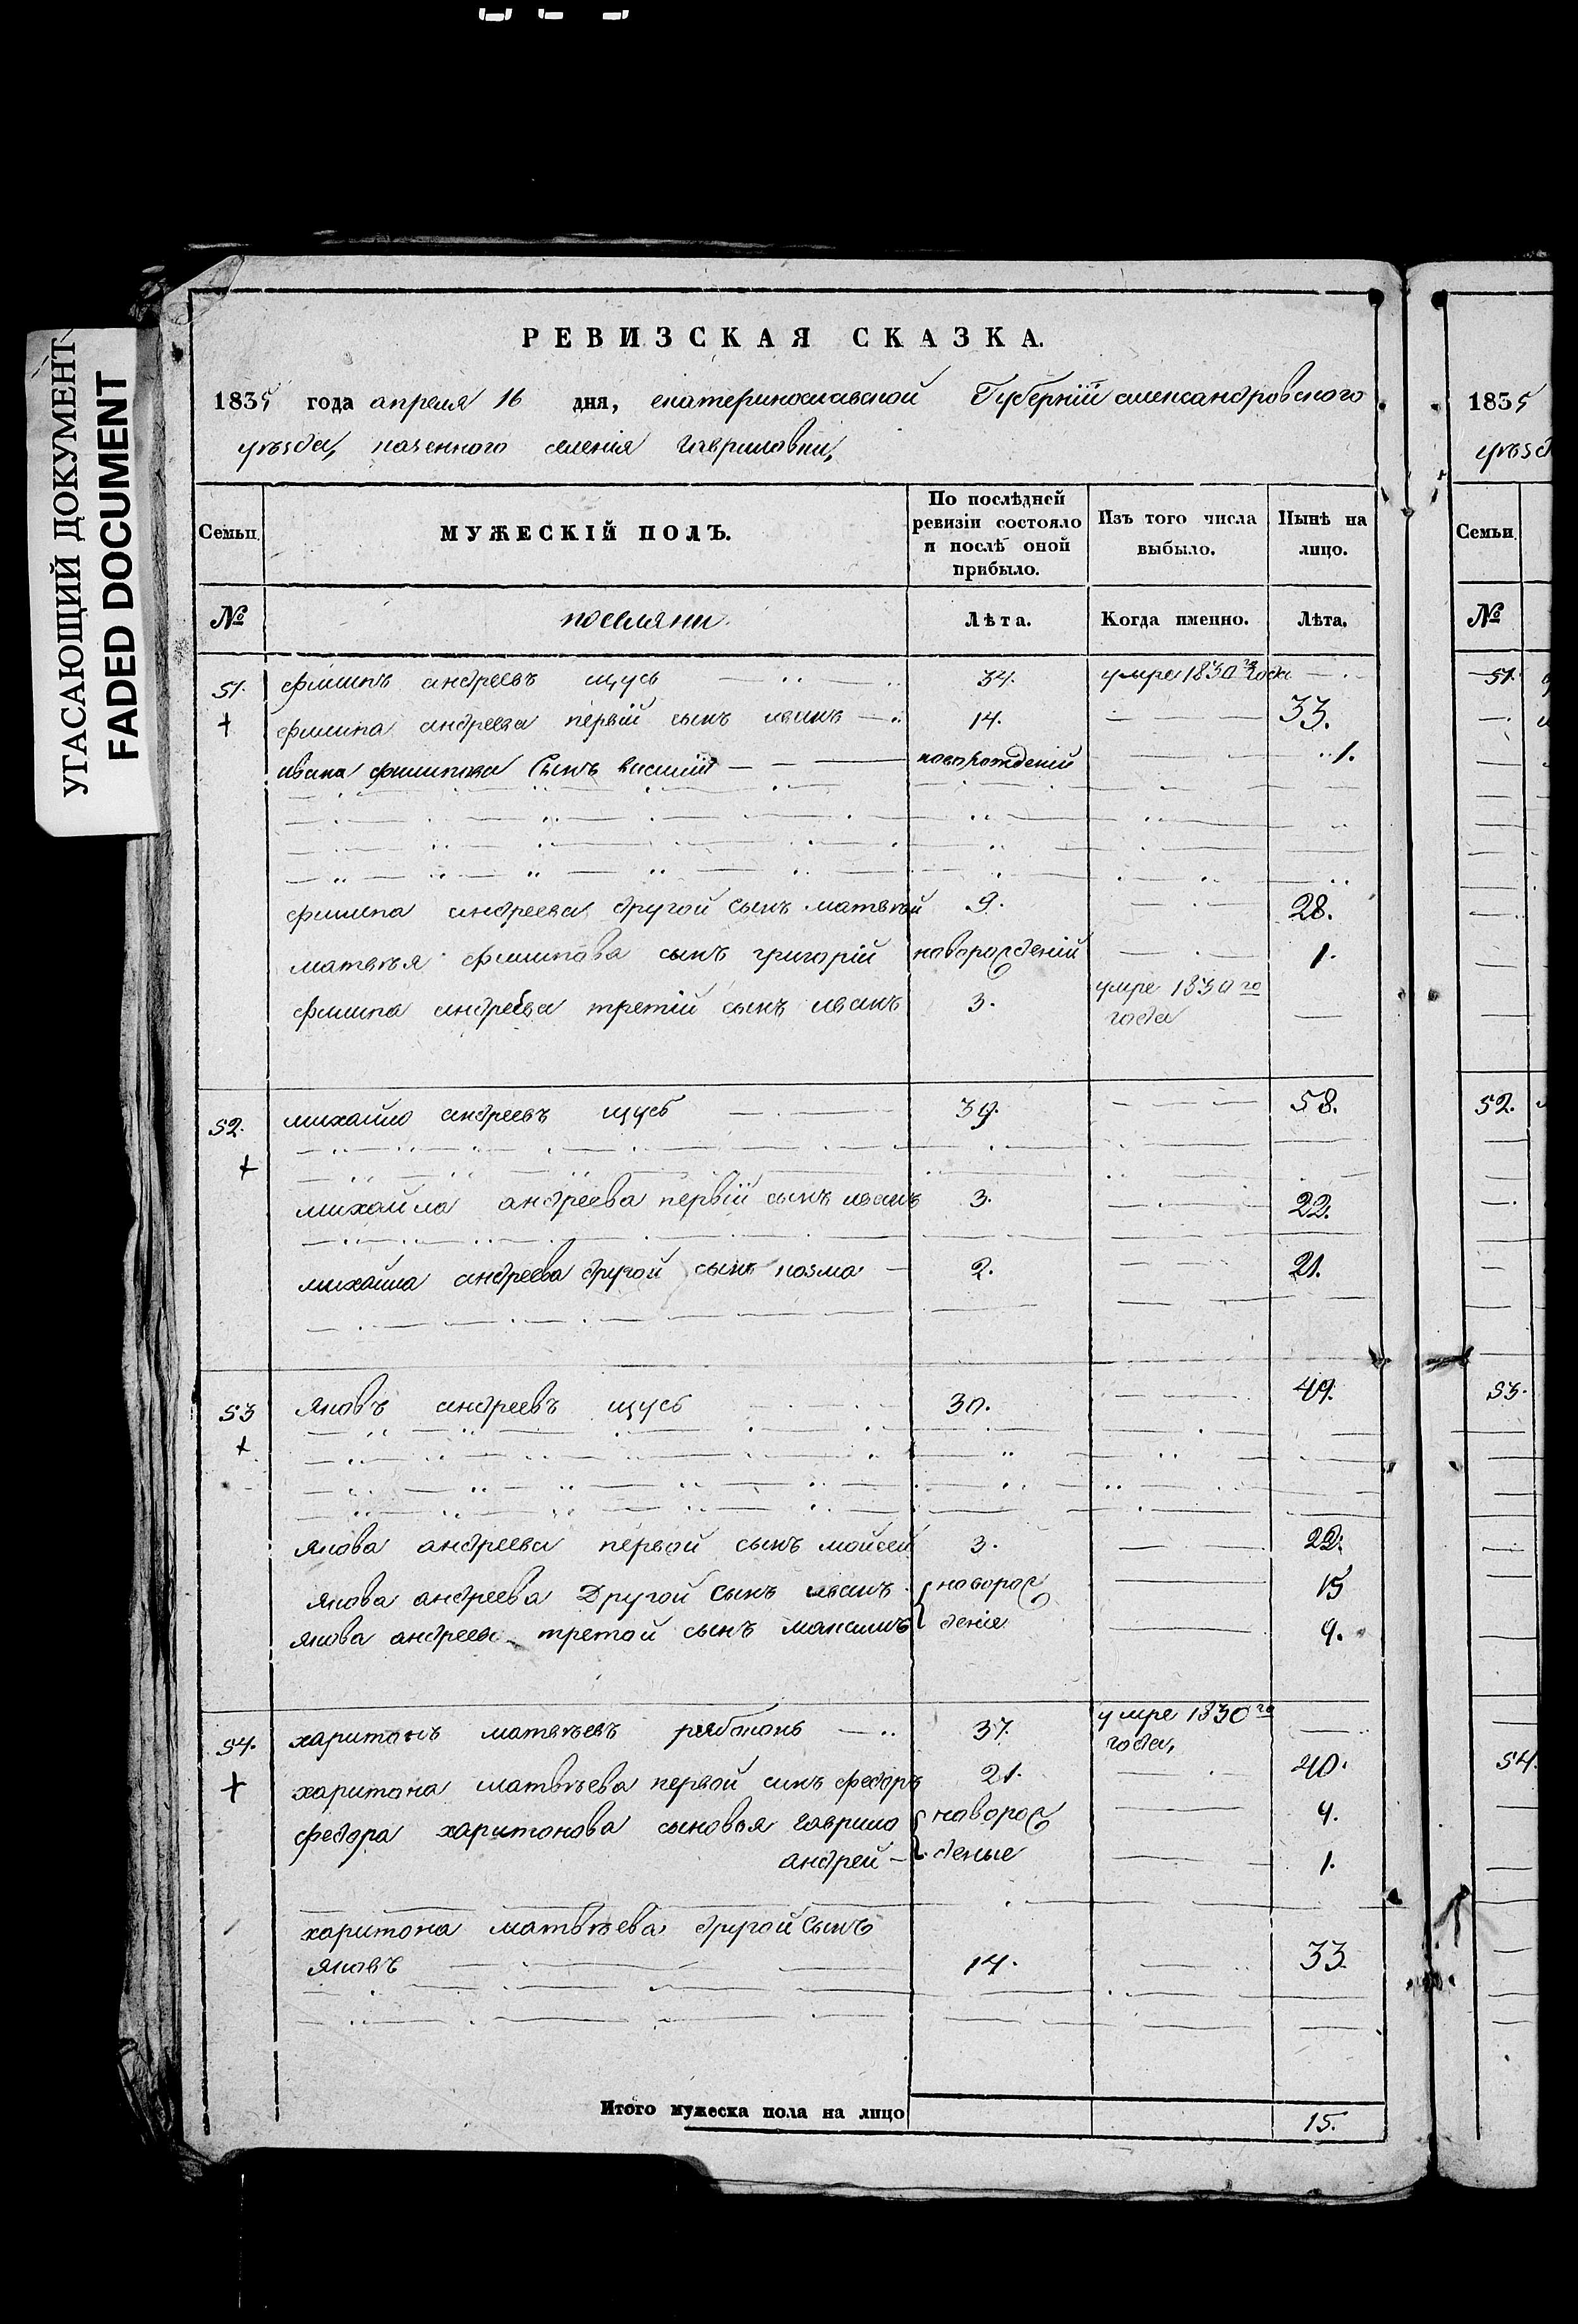 УГАСАЮЩИЙ ДОКУМЕНТ
FADED DOCUMENT
РЕВИЗСКАЯ СКАЗКА.
1835 года апреля 16 дня, екатеринославской Губерніи александровского
уѣзда, казенного селенія Гавриловки,
Семьи. МУЖЕСКІЙ ПОЛЪ. По послѣдней ревизіи состояло и послѣ оной прибыло. Изъ того числа выбыло. Нынѣ на лицо.
№ поселяни. Лѣта. Когда именно. Лѣта.
51. филипъ андреевъ щусь 34. умре 1830го года
+ филипа андреева первій сынъ иванъ 14. 33.
ивана филипова Сынъ василій новорожденій 1.
филипа андреева другой сынъ матвѣй 9. 28.
матвѣя филипова сынъ григорій новорожденій 1.
филипа андреева третій сынъ иванъ 3. умре 1830го года
52. михайло андреевъ щусь 39. 58.
+
михайла андреева первій сынъ иванъ 3. 22.
михайла андреева другой сынъ козма 2. 21.
53 яковъ андреевъ щусь 30. 49.
+
якова андреева первой сынъ мойсей 3. 22.
якова андреева Другой сынъ иванъ новорож 15
якова андреева третой сынъ максимъ деніе 9.
54. харитонъ матвѣевъ рябоконь 37. умре 1830го года,
+ харитона матвѣева первой синъ федоръ 21. 40.
федора харитонова сыновья гаврило новорож 4.
андрей деные 1.
харитона матвѣева другой сынъ
яковъ 14. 33.
Итого мужеска пола на лицо 15.
1835
уѣзд
Семьи.
№
51.
52.
53.
54.